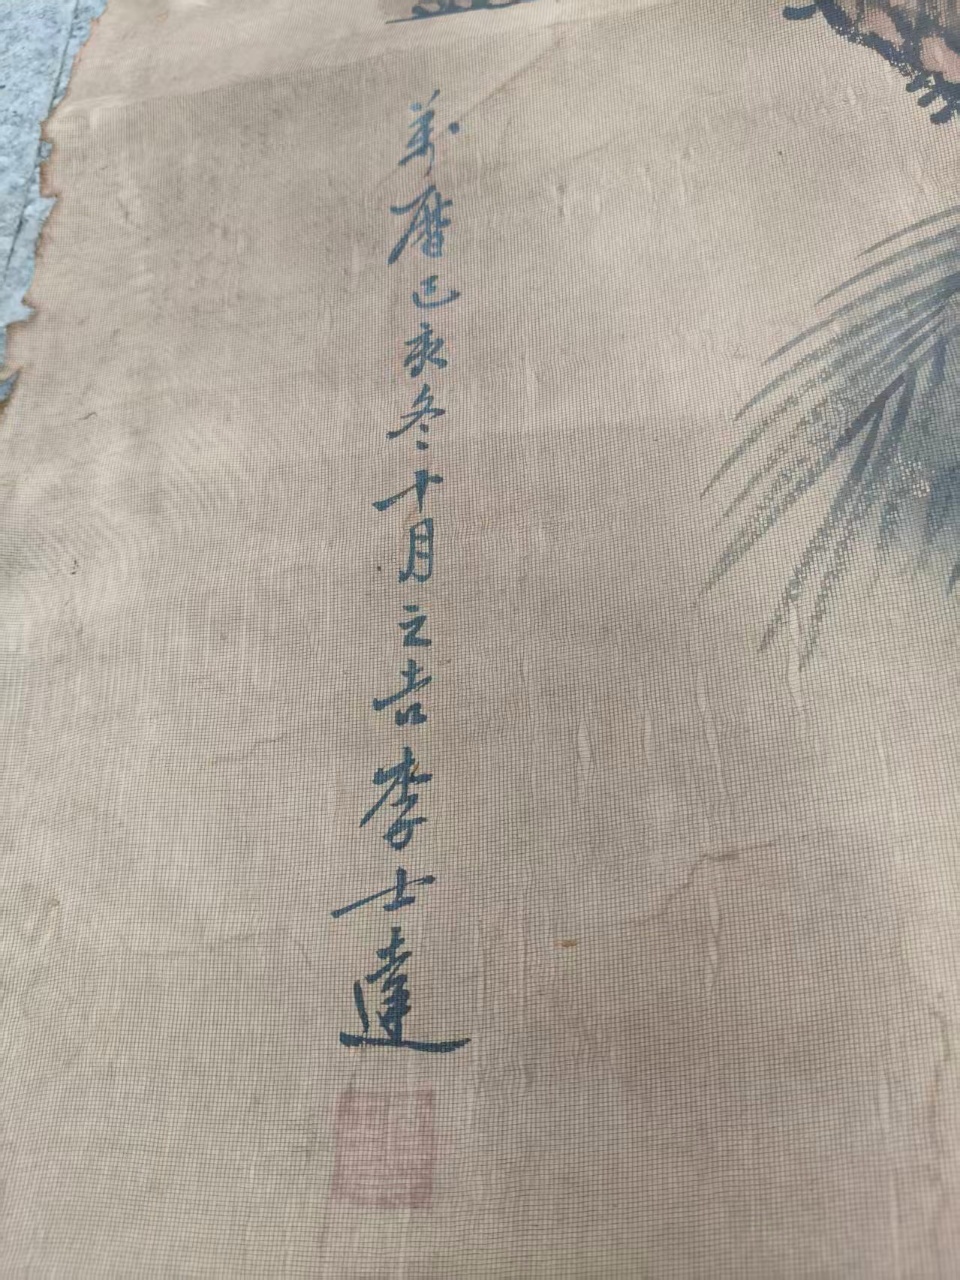 萬曆己亥冬十月之吉李士達